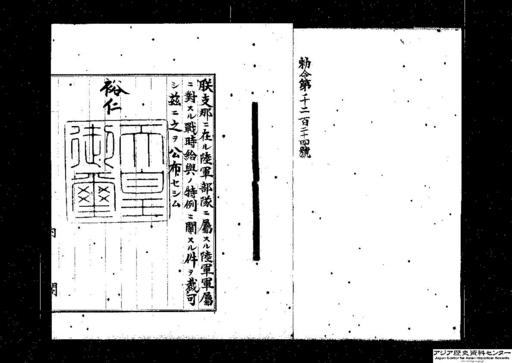 勅令第千二百二十四號
朕支那ニ在ル陸軍部隊ニ屬スル陸軍軍屬
ニ對スル戰時給與ノ特例ニ關スル件ヲ裁可
シ茲ニ之ヲ公布セシム
裕仁
天皇
御璽
内
閣
アジア歴史資料センター
Japan Center for Asian Historical Records